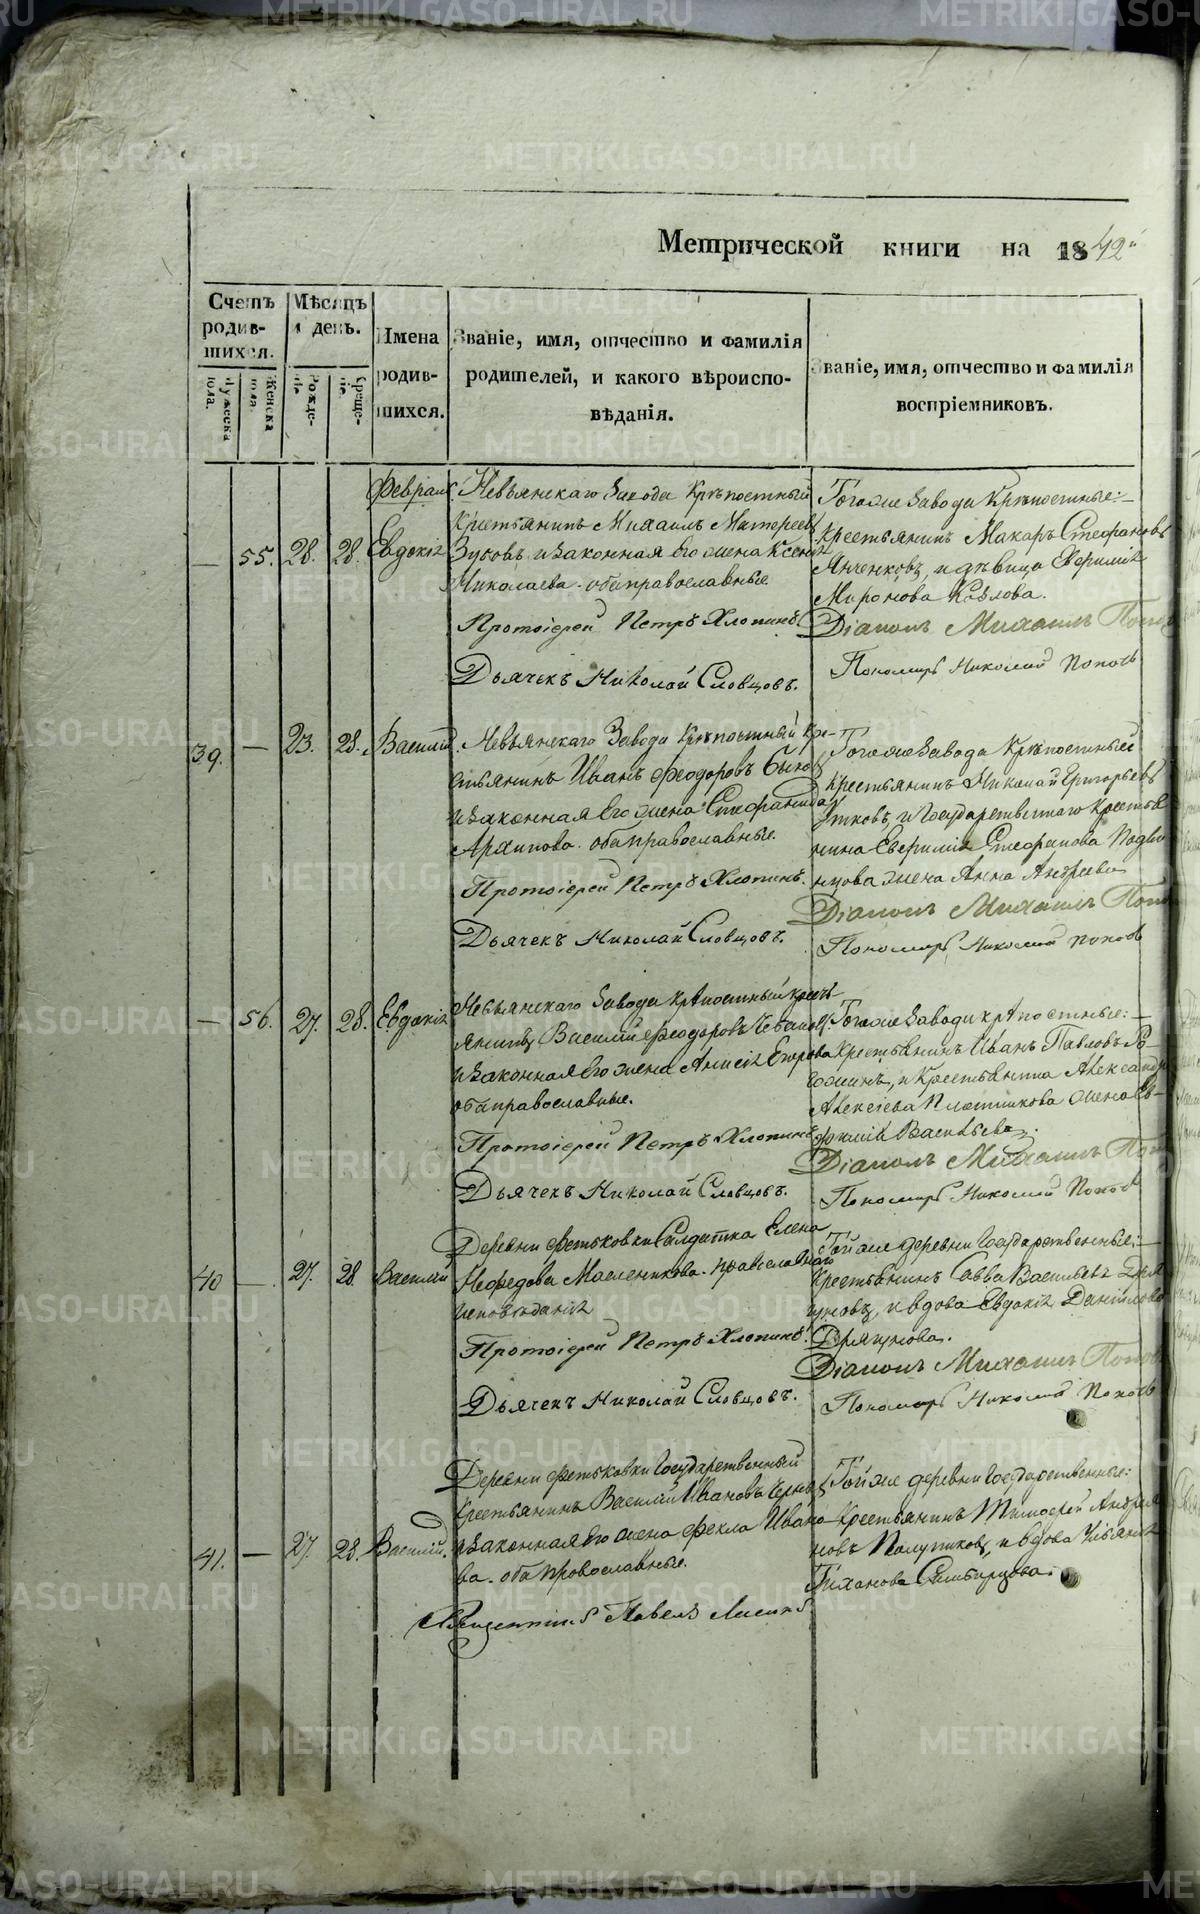 Метрической книги на 1842й
Счетъ родив-шихся.
Мѣсяцъ и день.
Имена родив-шихся.
Званіе, имя, отчество и фамилія
родителей, и какого вѣроиспо-
вѣданія.
Званіе, имя, отчество и фамилія
воспріемниковъ.
Мужеска пола.
Женска пола.
Рожде-нія.
Креще-нія.
Февраль
— 55. 28. 28. Евдокія
Невьянскаго Завода Крѣпостный
Крестьянинъ Михаилъ Матереев
Зубовъ и законная его жена Ксенія
Николаева. оба православные
Протоіерей Петръ Хлопинъ.
Дьячекъ Николай Словцовъ.
Тогоже Завода Крѣпостные:—
Крестьянинъ Макаръ Стефановъ
Янченковъ, и дѣвица Евфимія
Миронова Козлова.
Діаконъ Михаилъ Попов
Пономарь Николай Поповъ
39. — 23. 28. Василій.
Невьянскаго Завода Крѣпостный Кре-
стьянинъ Иванъ Феодоровъ Быков
и законная его жена Стефанида
Архипова. оба православные.
Протоіерей Петръ Хлопинъ.
Дьячекъ Николай Словцовъ.
Тогоже Завода Крѣпостный
Крестьянинъ Николай Григорьевъ
Утковъ, и Государственнаго Крестья
нина Евфимія Стефанова Подви
нцова жена Анна Андреева
Діаконъ Михаилъ Попо
Пономарь Николай Поповъ
— 56. 27. 28. Евдокія
Невьянскаго Завода крѣпостный крест
янинъ Василій Феодоровъ
и законная его жена Анисія Егорова
оба православные.
Протоіерей Петръ Хлопинъ
Дьячекъ Николай Словцовъ.
Тогоже Завода крѣпостные:—
Крестьянинъ Иванъ Павловъ Ро-
гожинъ, и Крестьянина Александр
Алексіева Плотникова жена Ев-
фимія Васильева.
Діаконъ Михаилъ Поп
Пономарь Николай Поповъ
40 — 27. 28 Василій
Деревни Фетьковки Салдатка Елена
Нефедова Масленикова. православнаго
исповѣданія
Протоіерей Петръ Хлопинъ.
Дьячекъ Николай Словцовъ.
Тойже деревни Государственные:—
Крестьянинъ Савва Васильевъ Дряг
уновъ, и вдова Евдокія Данилова
Дрягунова.
Діаконъ Михаилъ Попов
Пономарь Николай Поповъ
41. — 27. 28. Василій.
Деревни Фетьковки Государственный
Крестьянинъ Василій Ивановъ Чернов
и законная его жена Фекла Ивано
ва. оба православные.
Павелъ
Тойже деревни Государственные:
Крестьянинъ Тимофей Андрея
новъ Полупиковъ, и вдова Ульянія
Тиханова Симбирцова.
METRIKI.GASO-URAL.RU